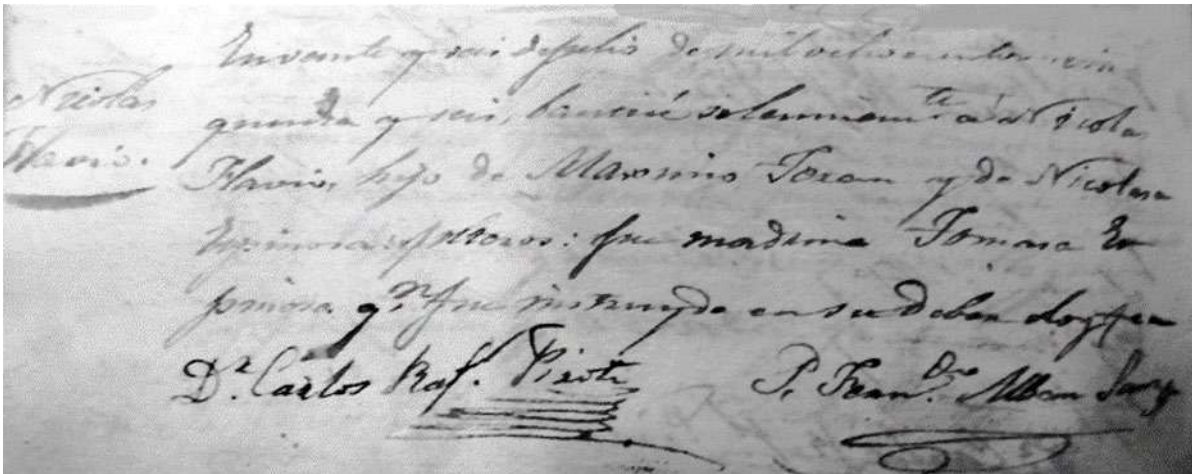 Nicolas
Flavio.
En veinte y seis de julio de mil ochocientos cin
quenta y seis, bauticé solemnem.te á Nicolas
Flavio, hijo de Maximo Toran y de Nicolasa
Espinosa esposos: fue madrina Tomasa Es
pinosa q.n fue instruyda en su deber doy fee
D.r Carlos Raf. Pizoti
P. Fern.do Alban